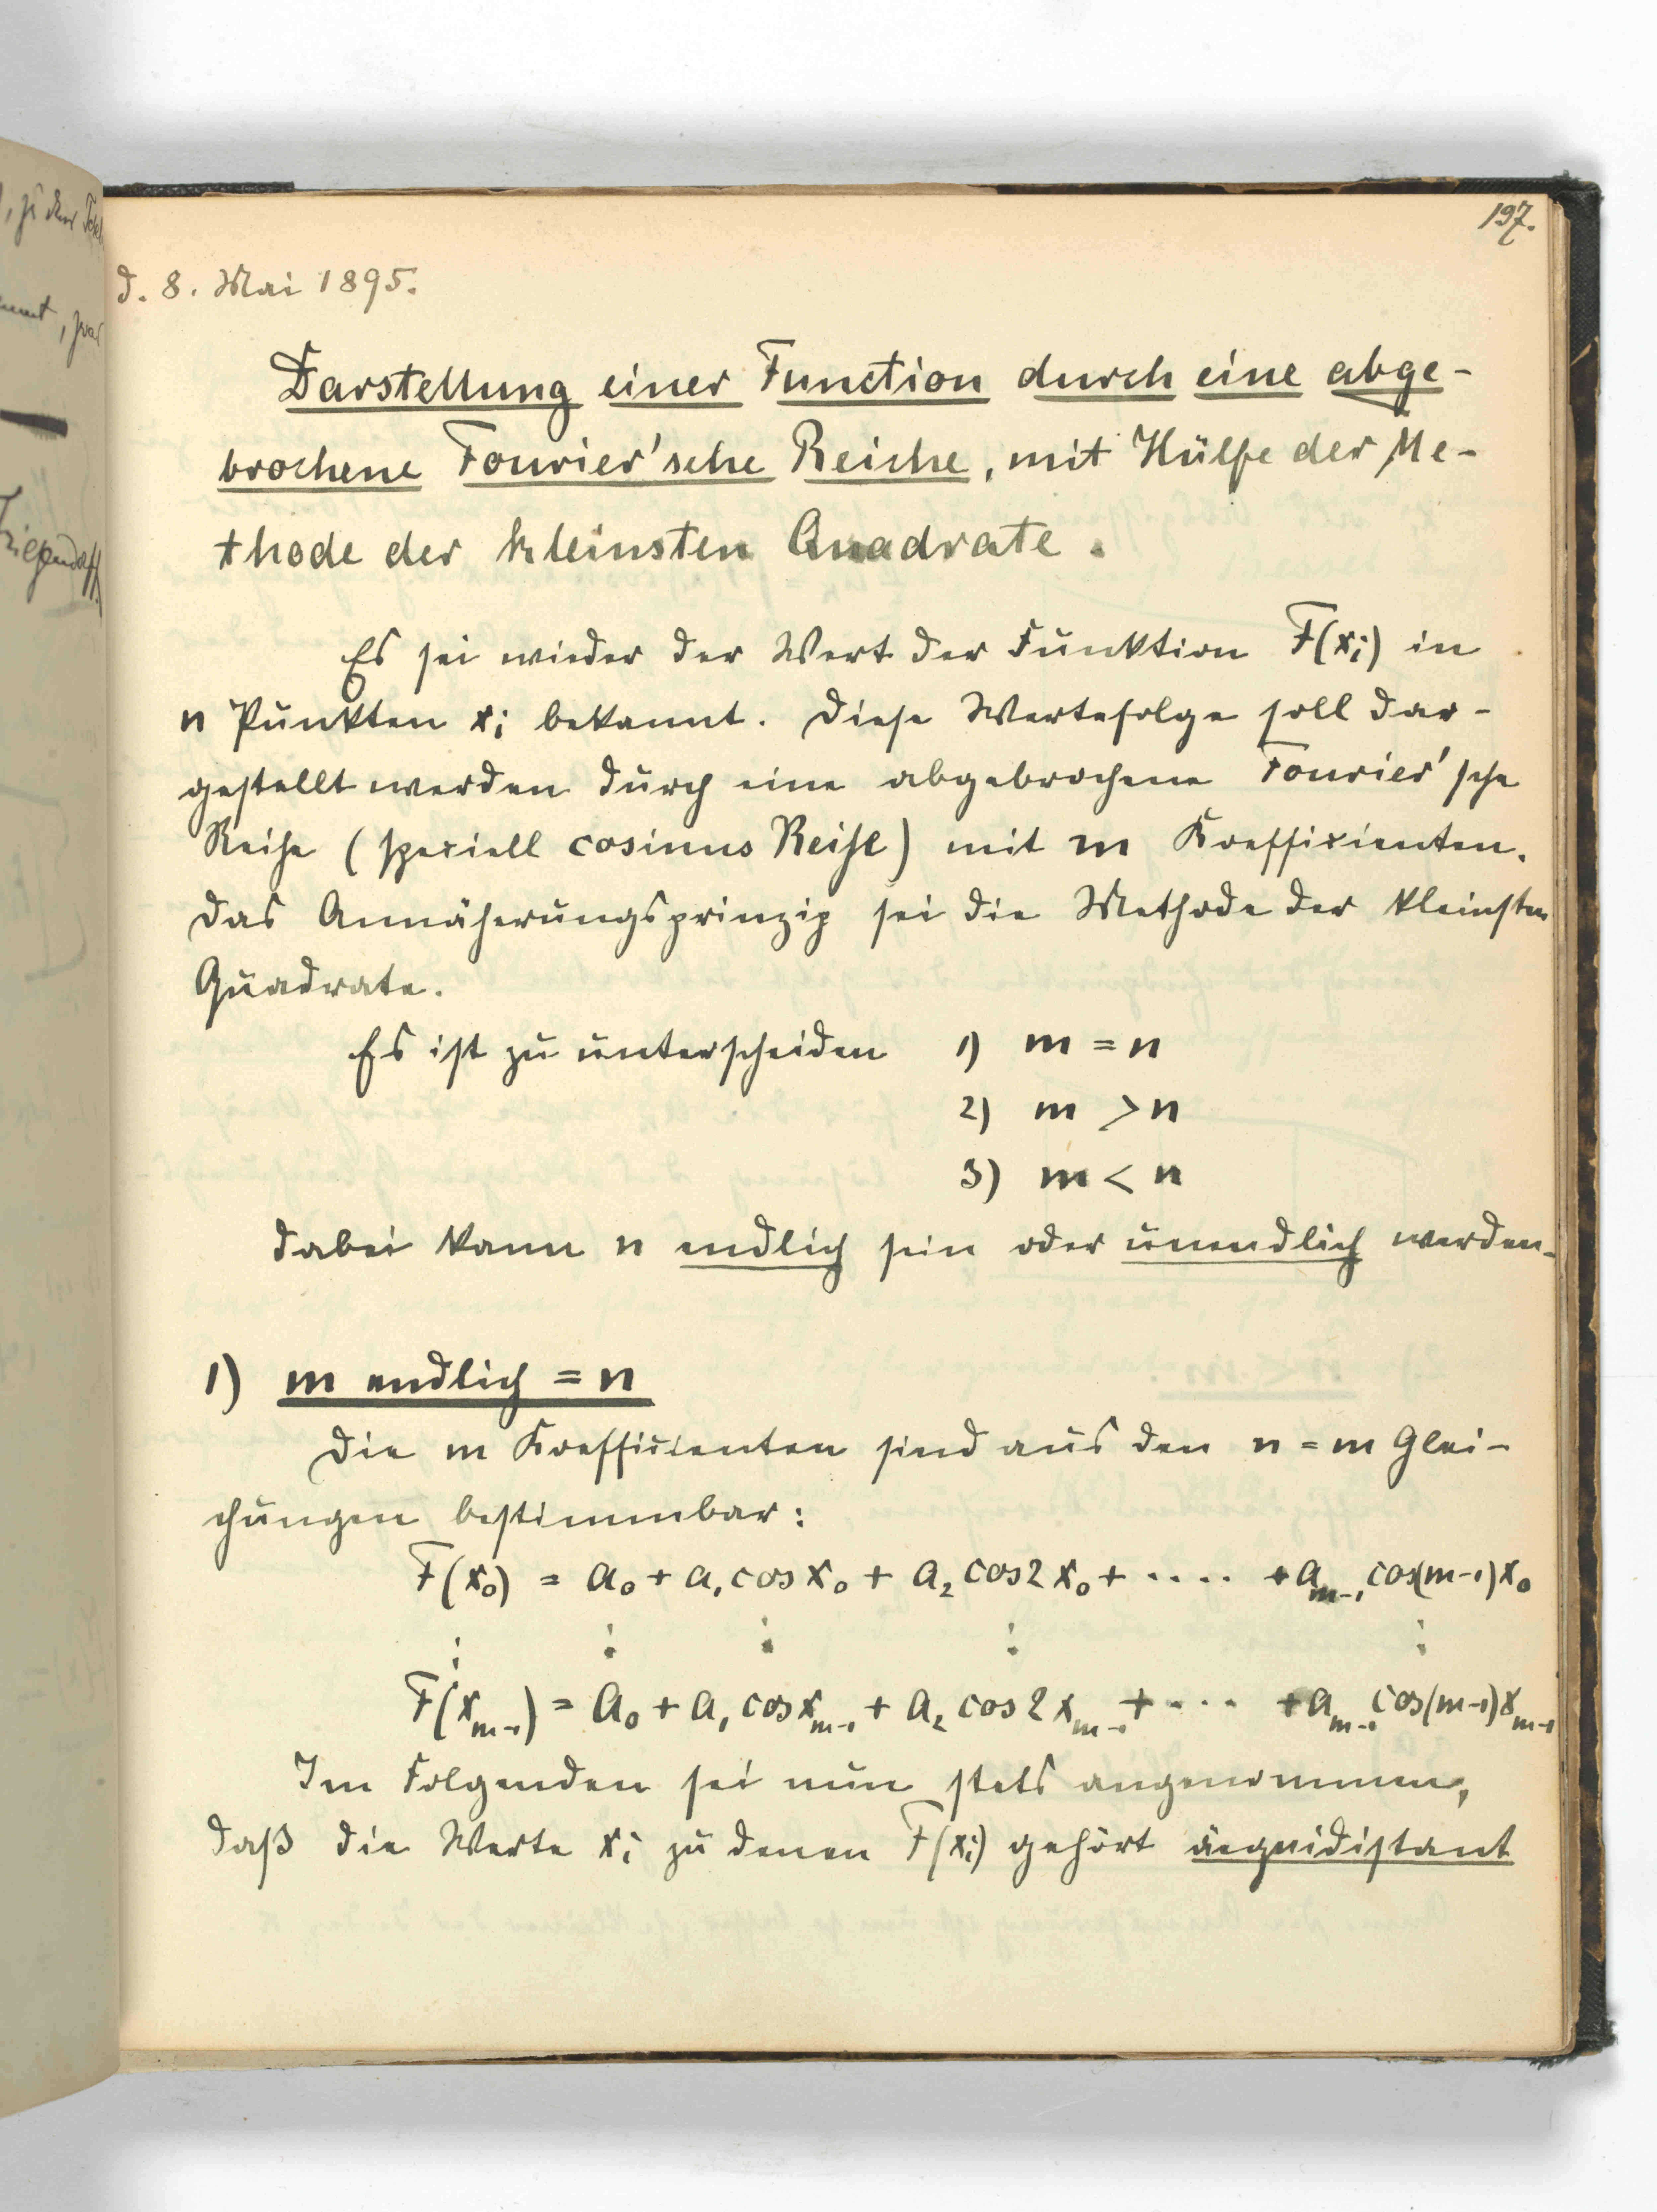 197.
d. 8. Mai 1895.
Darstellung einer Function durch eine abge-
brochene Fourier'sche Reihe, mit Hülfe der Me-
thode der kleinsten Quadrate.
Es sei wieder der Wert der Funktion F(xᵢ) in
n Punkten xᵢ bekannt. Diese Wertefolge soll dar-
gestellt werden durch eine abgebrochene Fourier'sche
Reihe (speziell cosinus Reihe) mit m Koeffizienten.
Das Annäherungsprinzip sei die Methode der kleinsten
Quadrate.
Es ist zu unterscheiden 1) m = n
2) m > n
3) m < n
Dabei kann n endlich sein oder unendlich werden.
1) m endlich = n
Die m Koeffizienten sind aus den n = m Glei-
chungen bestimmbar:
F(x₀) = a₀ + a₁ cos x₀ + a₂ cos 2x₀ + ···· + aₘ₋₁ cos(m-1)x₀
⋮ ⋮ ⋮ ⋮ ⋮
F(xₘ₋₁) = a₀ + a₁ cos xₘ₋₁ + a₂ cos 2xₘ₋₁ + ···· + aₘ₋₁ cos(m-1)xₘ₋₁
Im Folgenden sei nun stets angenommen,
daß die Werte xᵢ zu denen F(xᵢ) gehört äequidistant